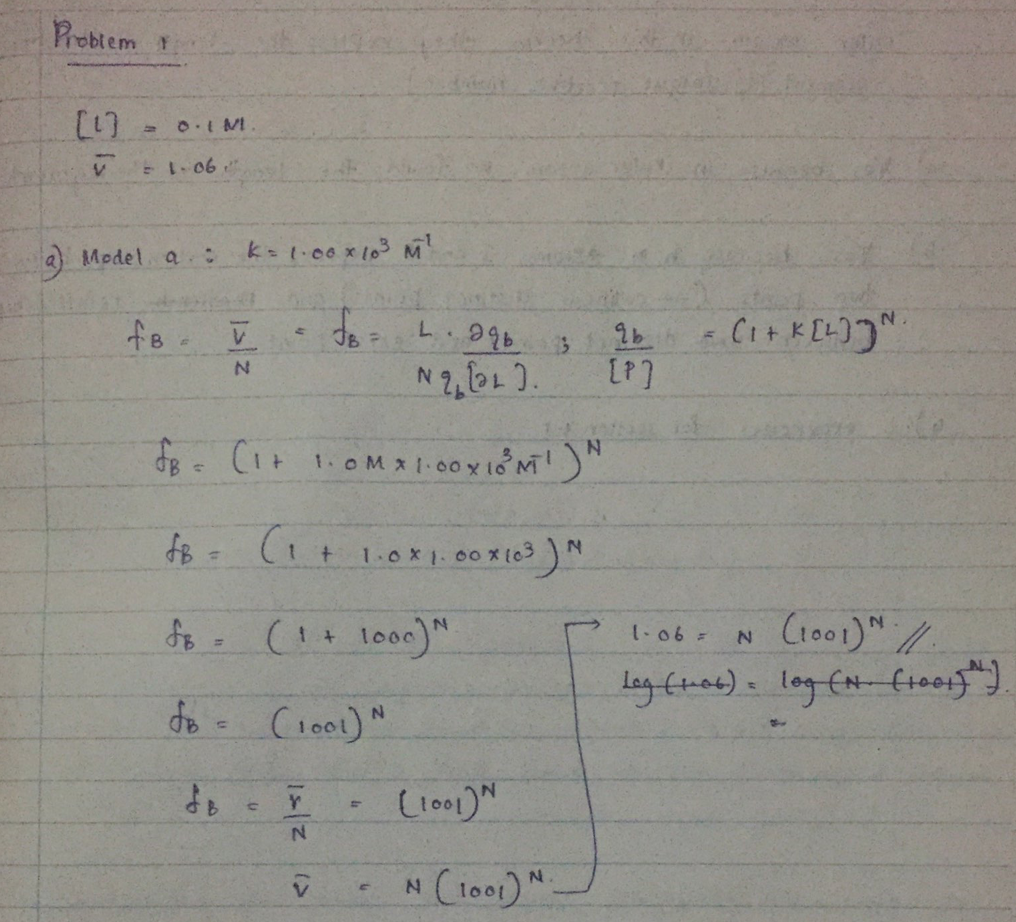 Problem 1
[L] = 0.1 M.
v̄ = 1.06.
a) Model a : K = 1.00 x 10³ M⁻¹
fB = v̄/N = fB = L · ∂qb / N qb [∂L]. ; qb/[P] = (1 + K[L])ᴺ.
fB = (1 + 1.0 M x 1.00 x 10³ M⁻¹)ᴺ
fB = (1 + 1.0 x 1.00 x 10³)ᴺ
fB = (1 + 1000)ᴺ
fB = (1001)ᴺ
fB = v̄/N = (1001)ᴺ
v̄ = N (1001)ᴺ.
1.06 = N (1001)ᴺ. //
log (1.06) = log (N. (1001)ᴺ).
=